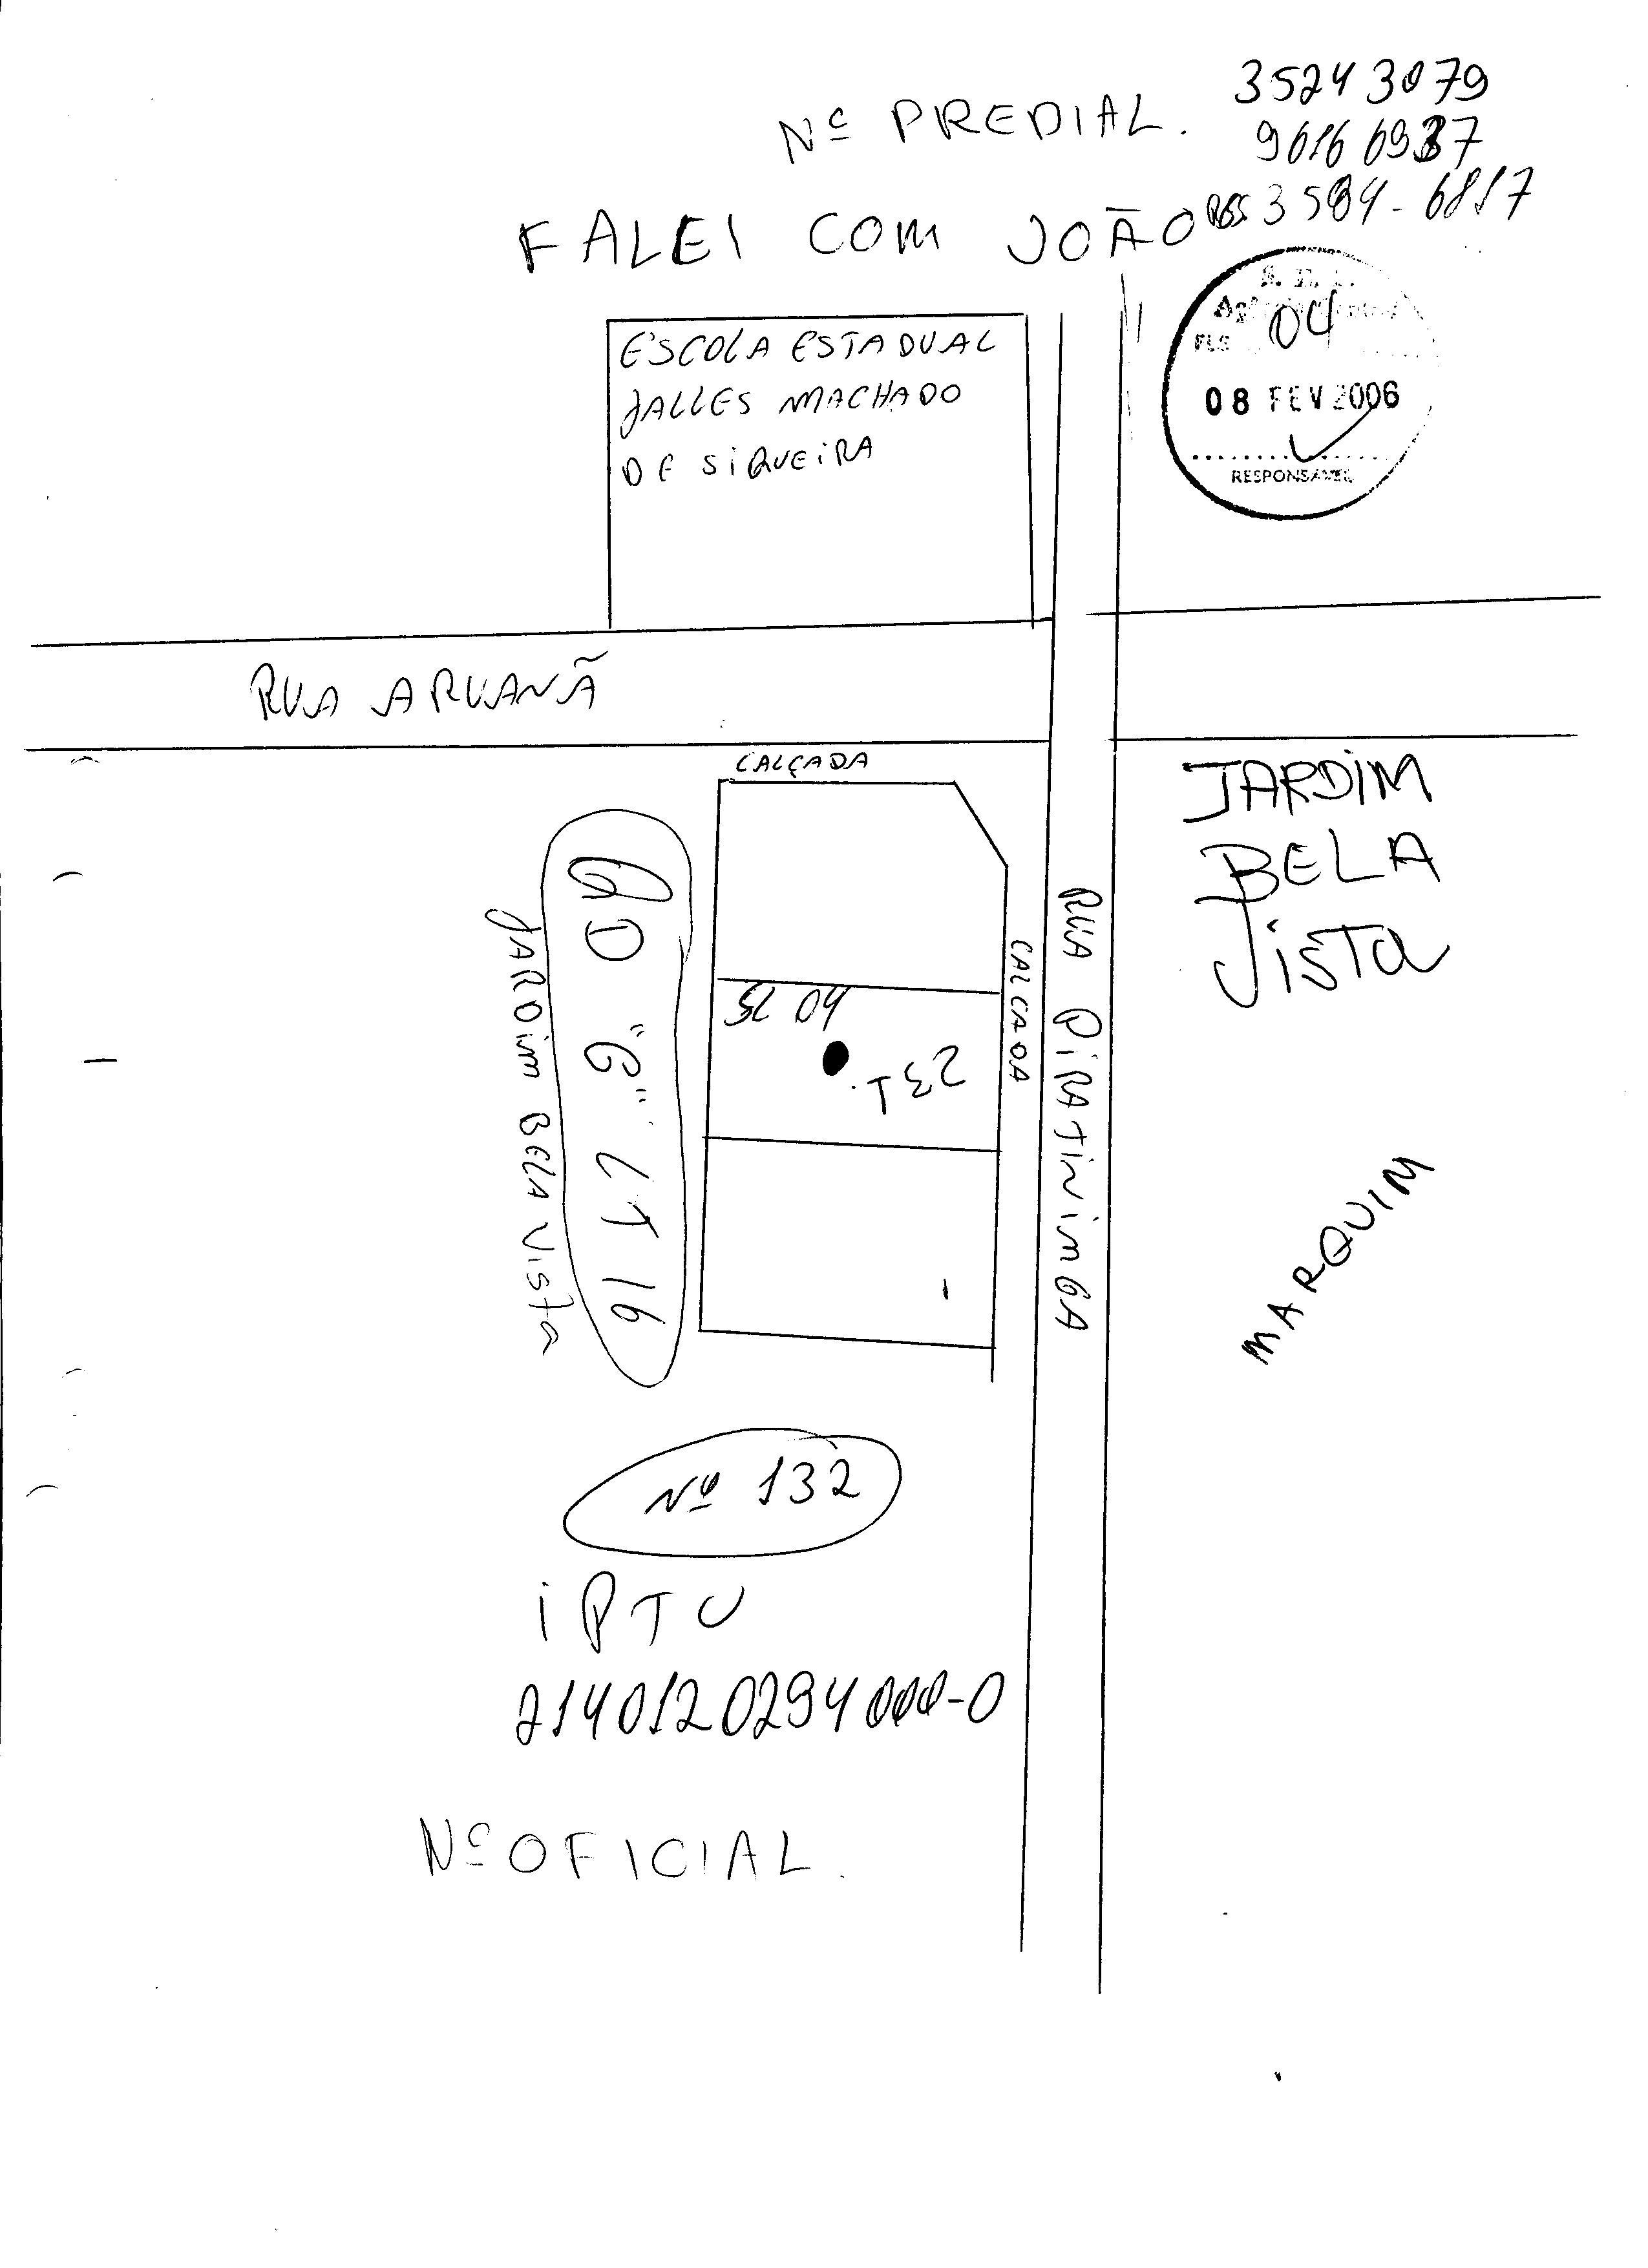 Nº PREDIAL.
3524 3079
9616 6937
RES 3594-6817
FALEI COM JOÃO
04
FLS
08 FEV 2006
RESPONSAVEL
ESCOLA ESTADUAL
JALLES MACHADO
DE SIQUEIRA
RUA ARUANÃ
CALÇADA
JARDIM
BELA
VISTA
QD "G" LT 16
JARDIM BELA VISTA
SL 04
CALCADA
RUA PIRATININGA
MARQUIM
Nº 132
IPTU
2140120294000-0
Nº OFICIAL.